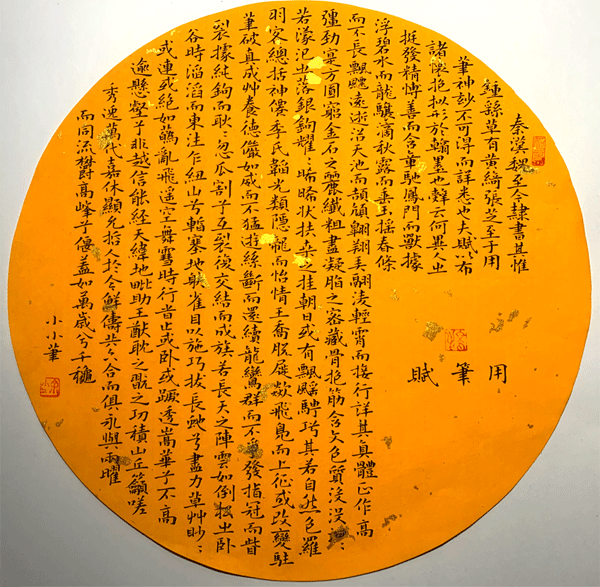 用筆賦
秦漢魏至今隸書其惟
鍾繇草有黃綺張芝至于用
筆神妙不可得而詳悉也夫賦以布
諸懷抱擬形於翰墨也辭云何異人之
挺發精博善而含章馳鳳門而獸據
浮碧水而龍驤滴秋露而垂玉搖春條
而不長飄飄遠逝浴天池而頡頏翱翔弄翮淩輕霄而接行詳其真體正作高
彊勁實方圓窮金石之麗纖粗盡凝脂之密藏骨抱筋含文包質沒沒汩〻
若濛汜之落銀鉤耀〻晞晞狀扶桑之挂朝日或有飄颻騁巧其若自然包羅
羽客總括神僊李氏韜光類隱龍而怡情王喬脫屣欻飛鳧而上征或改變駐
筆破真成艸養德儼如威而不猛遊絲斷而還續龍鸞群而不爭發指冠而眥
裂據純鉤而耿〻忽瓜割兮互裂復交結而成族若長天之陣雲如倒松之臥
谷時滔滔而東注乍紐山兮暫塞射雀目以施巧拔長蛇兮盡力草艸眇〻
或連或絕如蘤亂飛遙空舞雪時行時止或臥或蹶透嵩華兮不高
逾懸壑兮非越信能經天緯地毗助王猷耽之翫之功積山丘籲嗟
秀逸萬代嘉休顯允哲人於今鮮儔共六合而俱永與兩曜
而同流鬱高峰兮偃蓋如萬歲兮千龝
小小筆